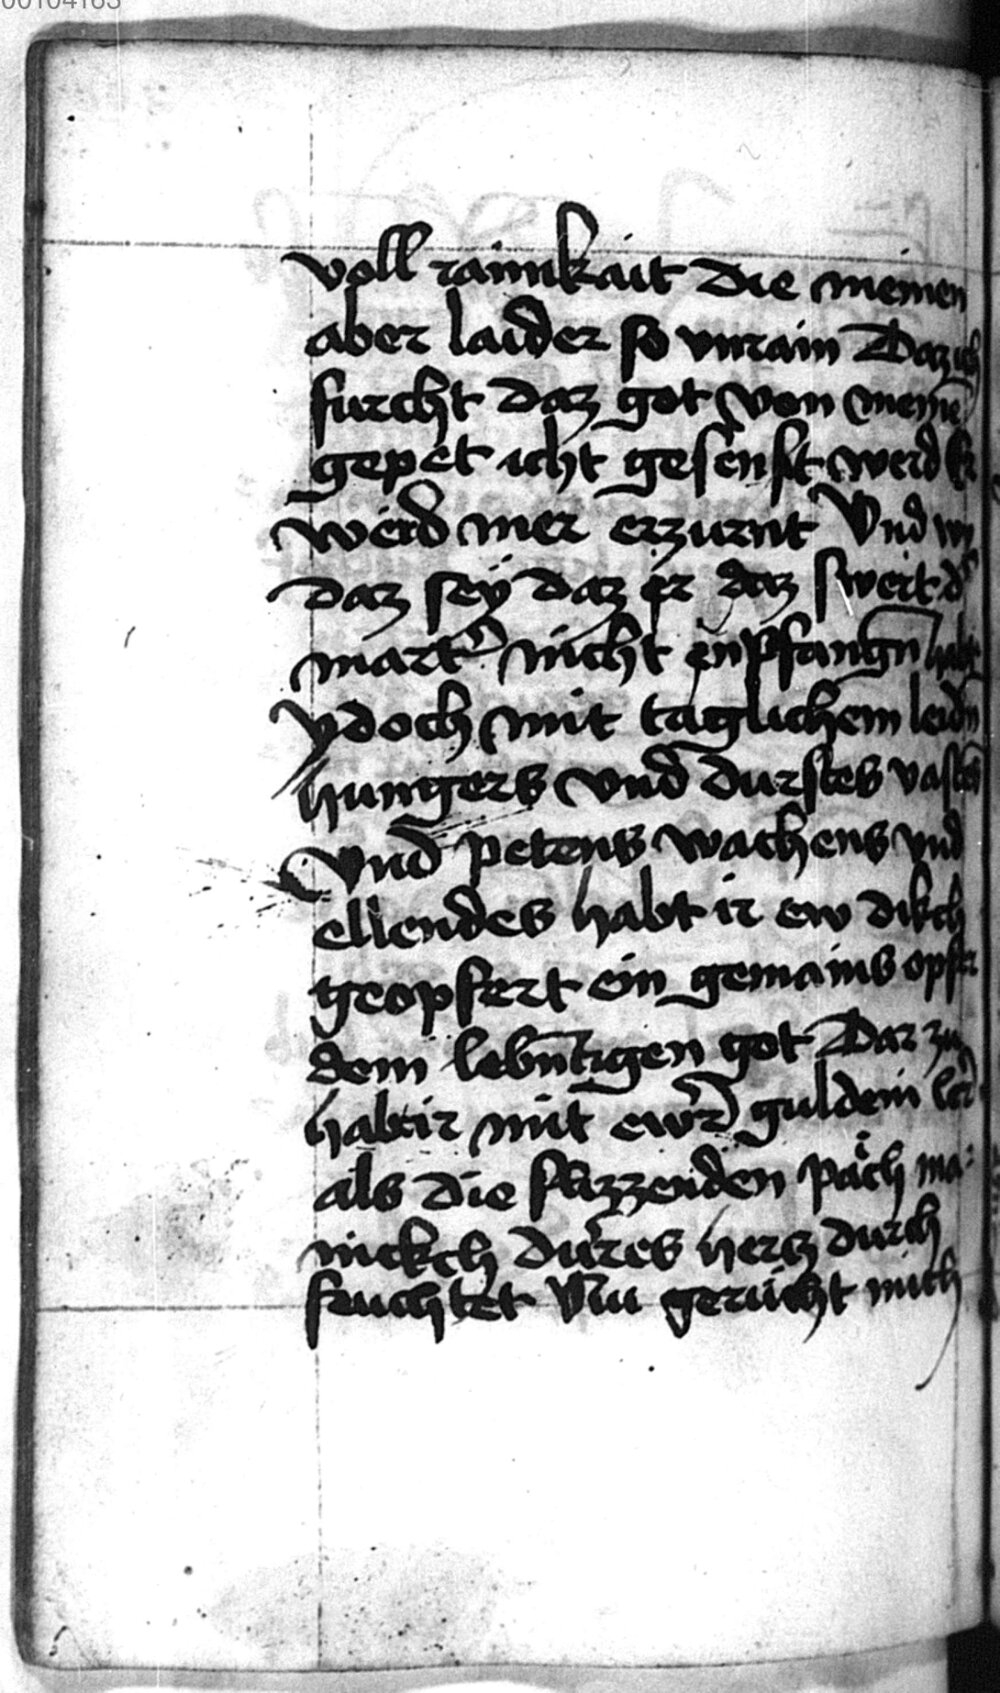 00104163
voll rainikait die meinen
aber laider so vnrain Daz ich
furcht daz got von meinē
gepet icht gesenft werd Er
werd mer erzurnt Vnd wy
daz sey daz ir daz swert d'
mart' nicht enpfangn habt
ydoch mit taglichem leidn
hungers vnd durstes vastens
Vnd petens wachens vnd
ellendes habt ir ew dikch
geopfert ein gemains opfer
dem lebn̄tigen got Dar zu
habt ir mit ewr' guldein ler
als die flizzenden päch ma
nickch dürres hercz durch
feuchtet Nu gerücht mich